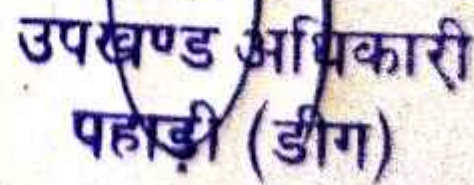 उपखण्ड अधिकारी
पहाड़ी (डीग)